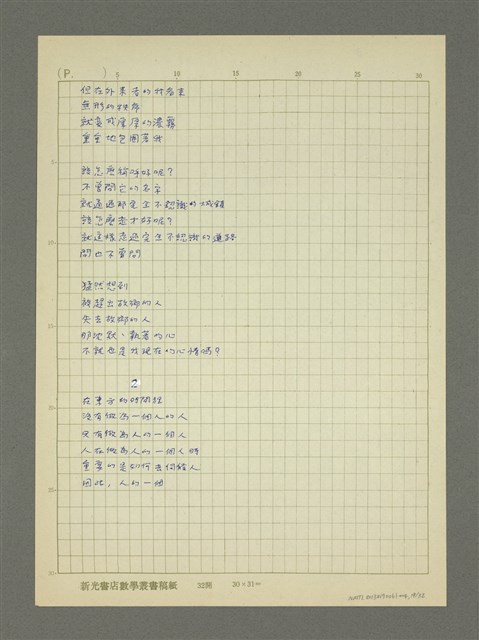 (P.
5
10
15
20
25
30
但在外來者的我看來
無形的秩序
就變成厚厚的濃霧
重重地包圍著我
5
該怎麼稱呼好呢?
不曾問它的名字
就通過那完全不認識的城鎮
該怎麼走才好呢?
10
就這樣走過完全不認識的道路
問也不曾問
猛然想到
被趕出故鄉的人
失去故鄉的人
15
那沈默、執著的心
不就也是我現在的心情嗎?
2
20
在東方的時間裡
沒有做為一個人的人
只有做為人的一個人
人在做為人的一個人時
重要的是如何去伺候人
25
因此,人的一個
30
新光書店數學叢書稿紙 32開 30×31㎝